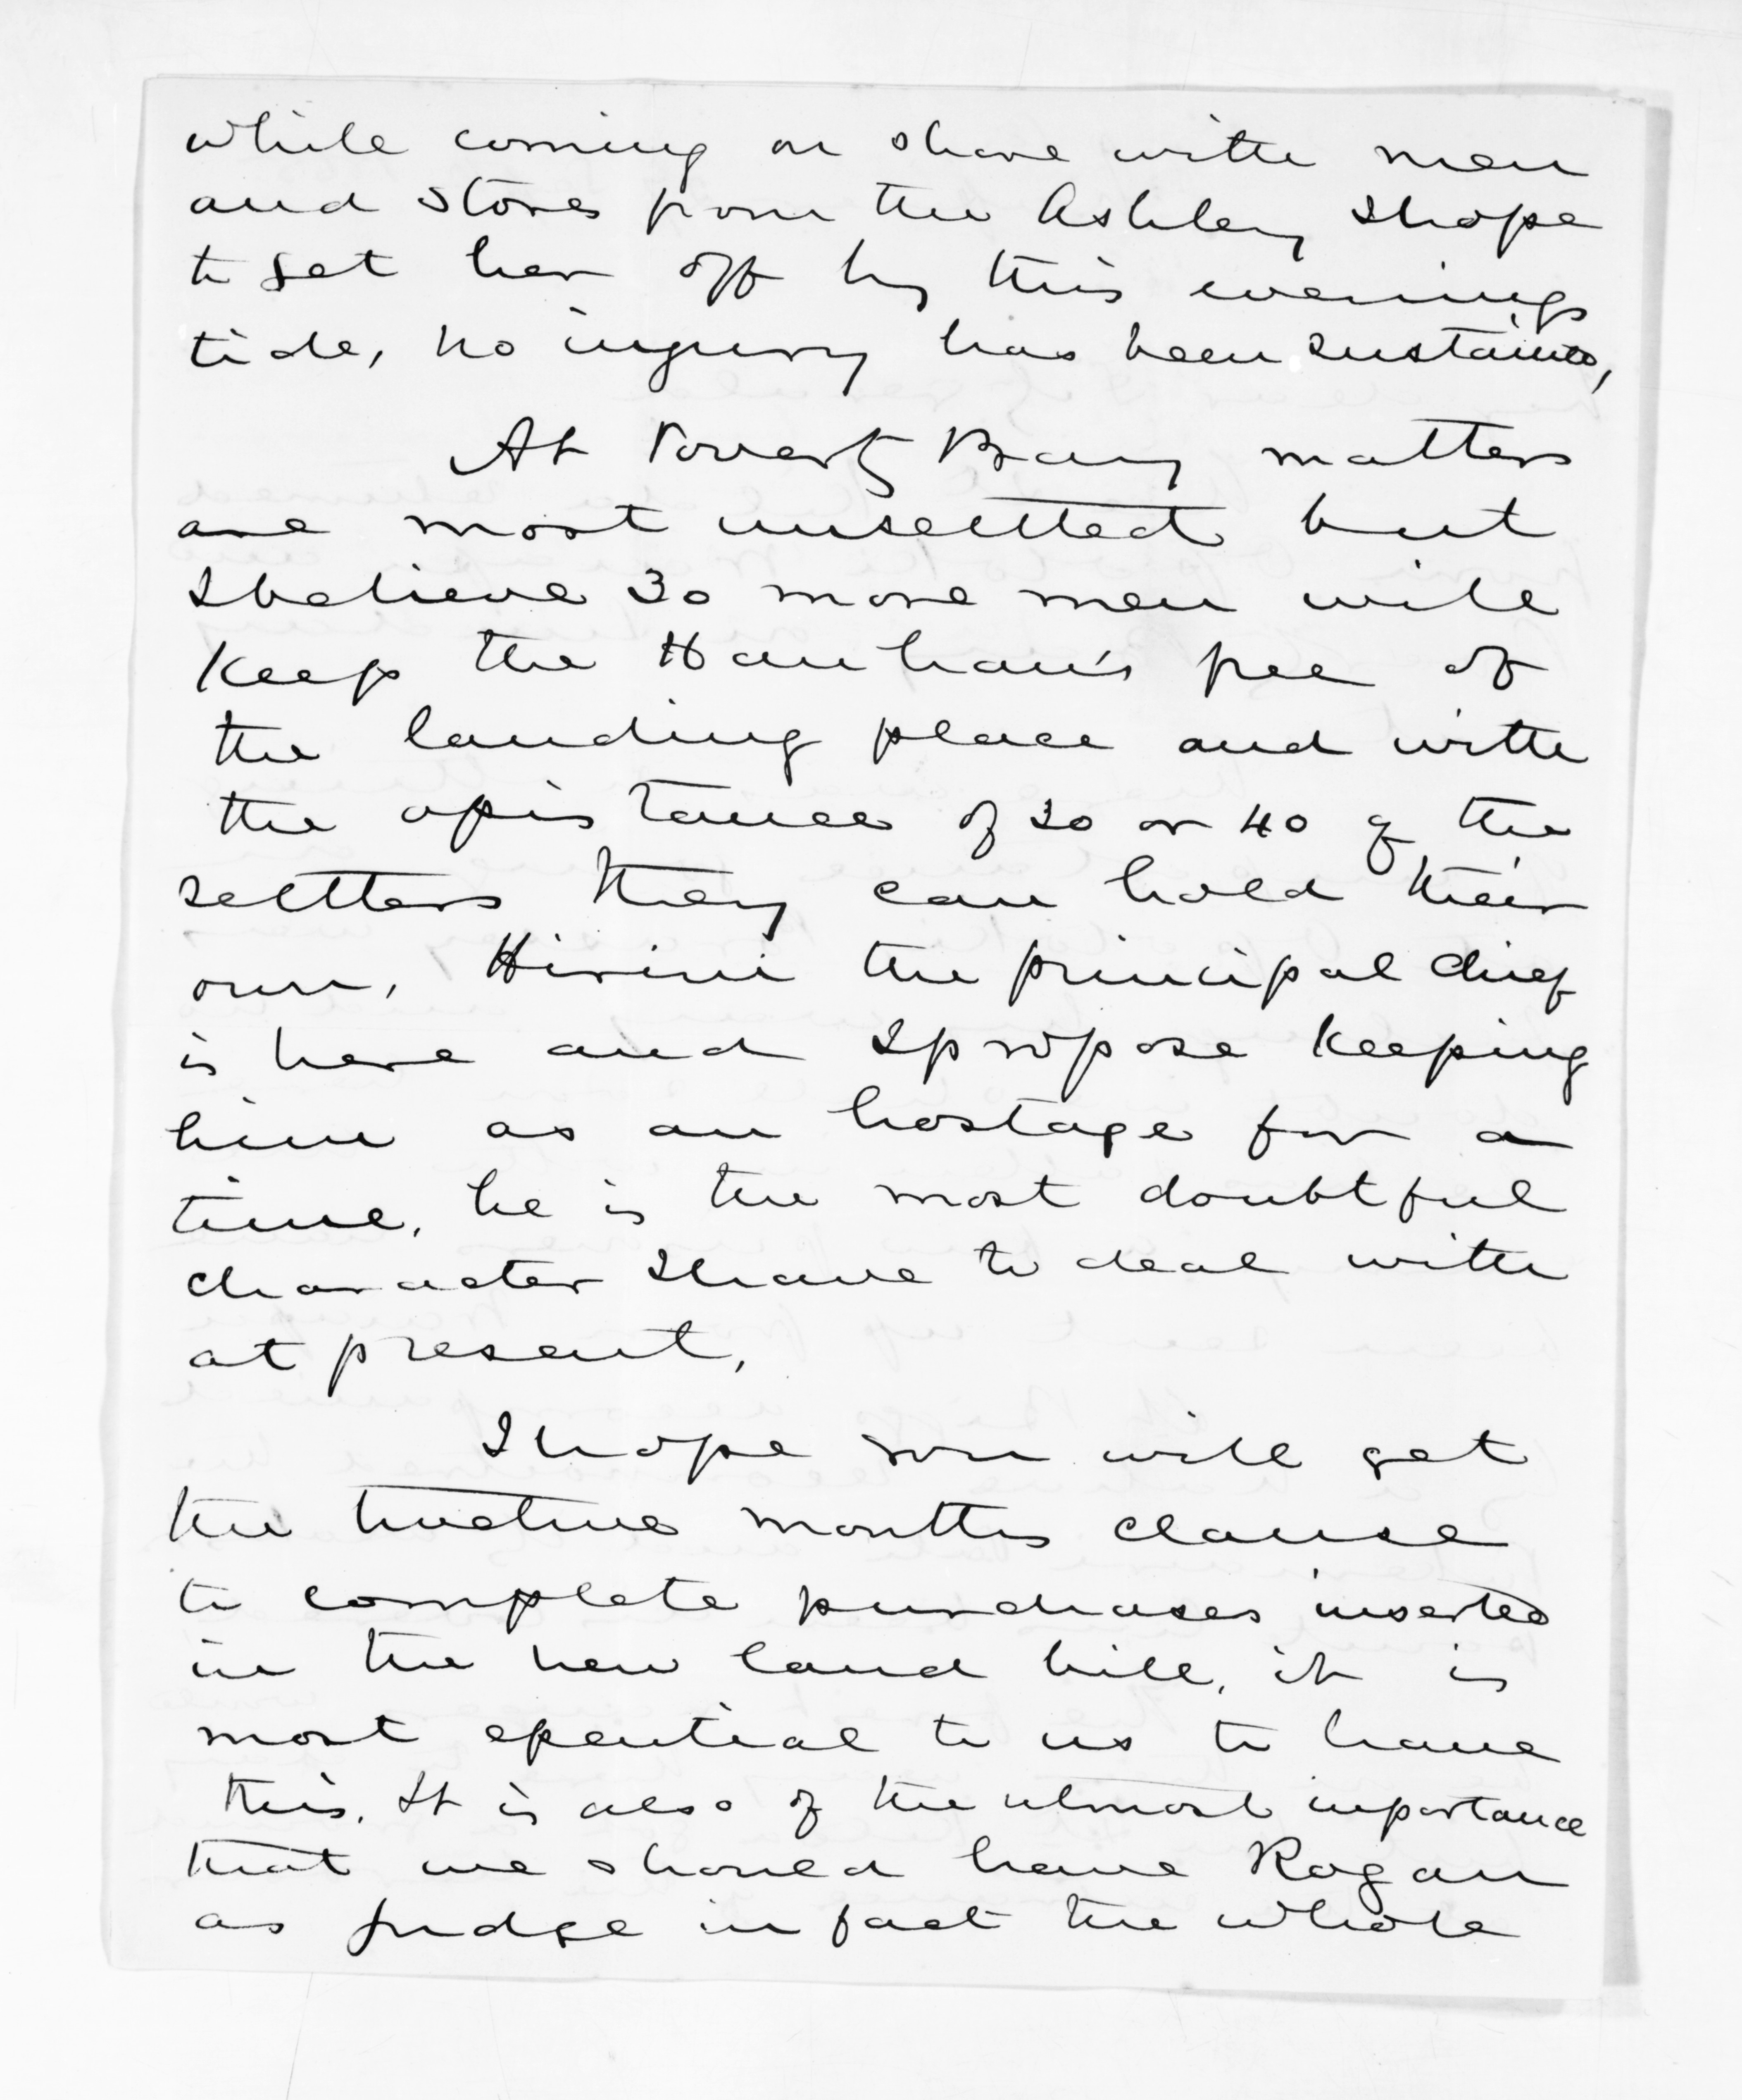 while coming on shore with men
and stores from the Ashley I hope
to get her off by this evenings
tide, no injury has been sustained,
At Poverty Bay matters
are most unsettled but
I believe 30 more men will
keep the Hauhau's free of
the landing place and with
the assistance of 30 or 40 of the
settlers they can hold their
own, Hirini the principal chief
is here and I propose keeping
him as an hostage for a
time, he is the most doubtful
character I have to deal with
at present,
I hope you will get
the twelve months clause
to complete purchases inserted
in the new land bill, it is
most essential to us to have
this. It is also of the utmost importance
that we should have Rogan
as Judge in fact the whole